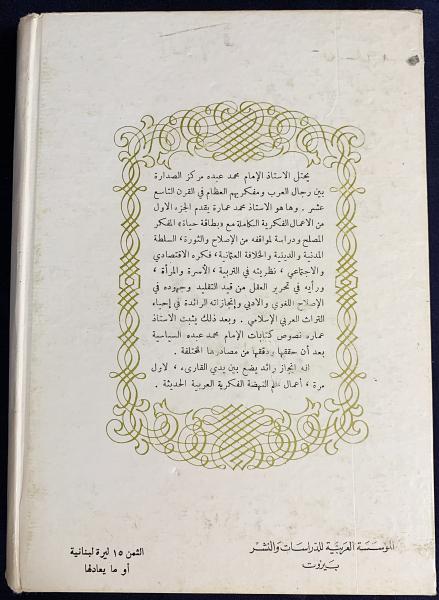 يحتل الاستاذ الإمام محمد عبده مركز الصدارة
بين رجال العرب ومفكريهم العظام في القرن التاسع
عشر . وها هو الاستاذ محمد عمارة يقدم الجزء الاول
من الاعمال الفكرية الكاملة مع «بطاقة حياة» المفكر
المصلح ودراسة لمواقفه من الإصلاح والثورة ، السلطة
المدنية والدينية والخلافة العثمانية ، فكره الاقتصادي
والاجتماعي ، نظريته في التربية ، الأسرة والمرأة ،
ورأيه في تحرير العقل من قيد التقليد وجهوده في
الإصلاح اللغوي والادبي وإنجازاته الرائدة في إحياء
التراث العربي الإسلامي . وبعد ذلك يثبت الاستاذ
عماره نصوص كتابات الإمام محمد عبده السياسية
بعد أن حققها ودققها من مصادرها المختلفة .
انه انجاز رائد يضع بين يدي القارىء ، لاول
مرة ، أعمال علم النهضة الفكرية العربية الحديثة .
المؤسسة العربية للدراسات والنشر
بيروت
الثمن ١٥ ليرة لبنانية
أو ما يعادلها